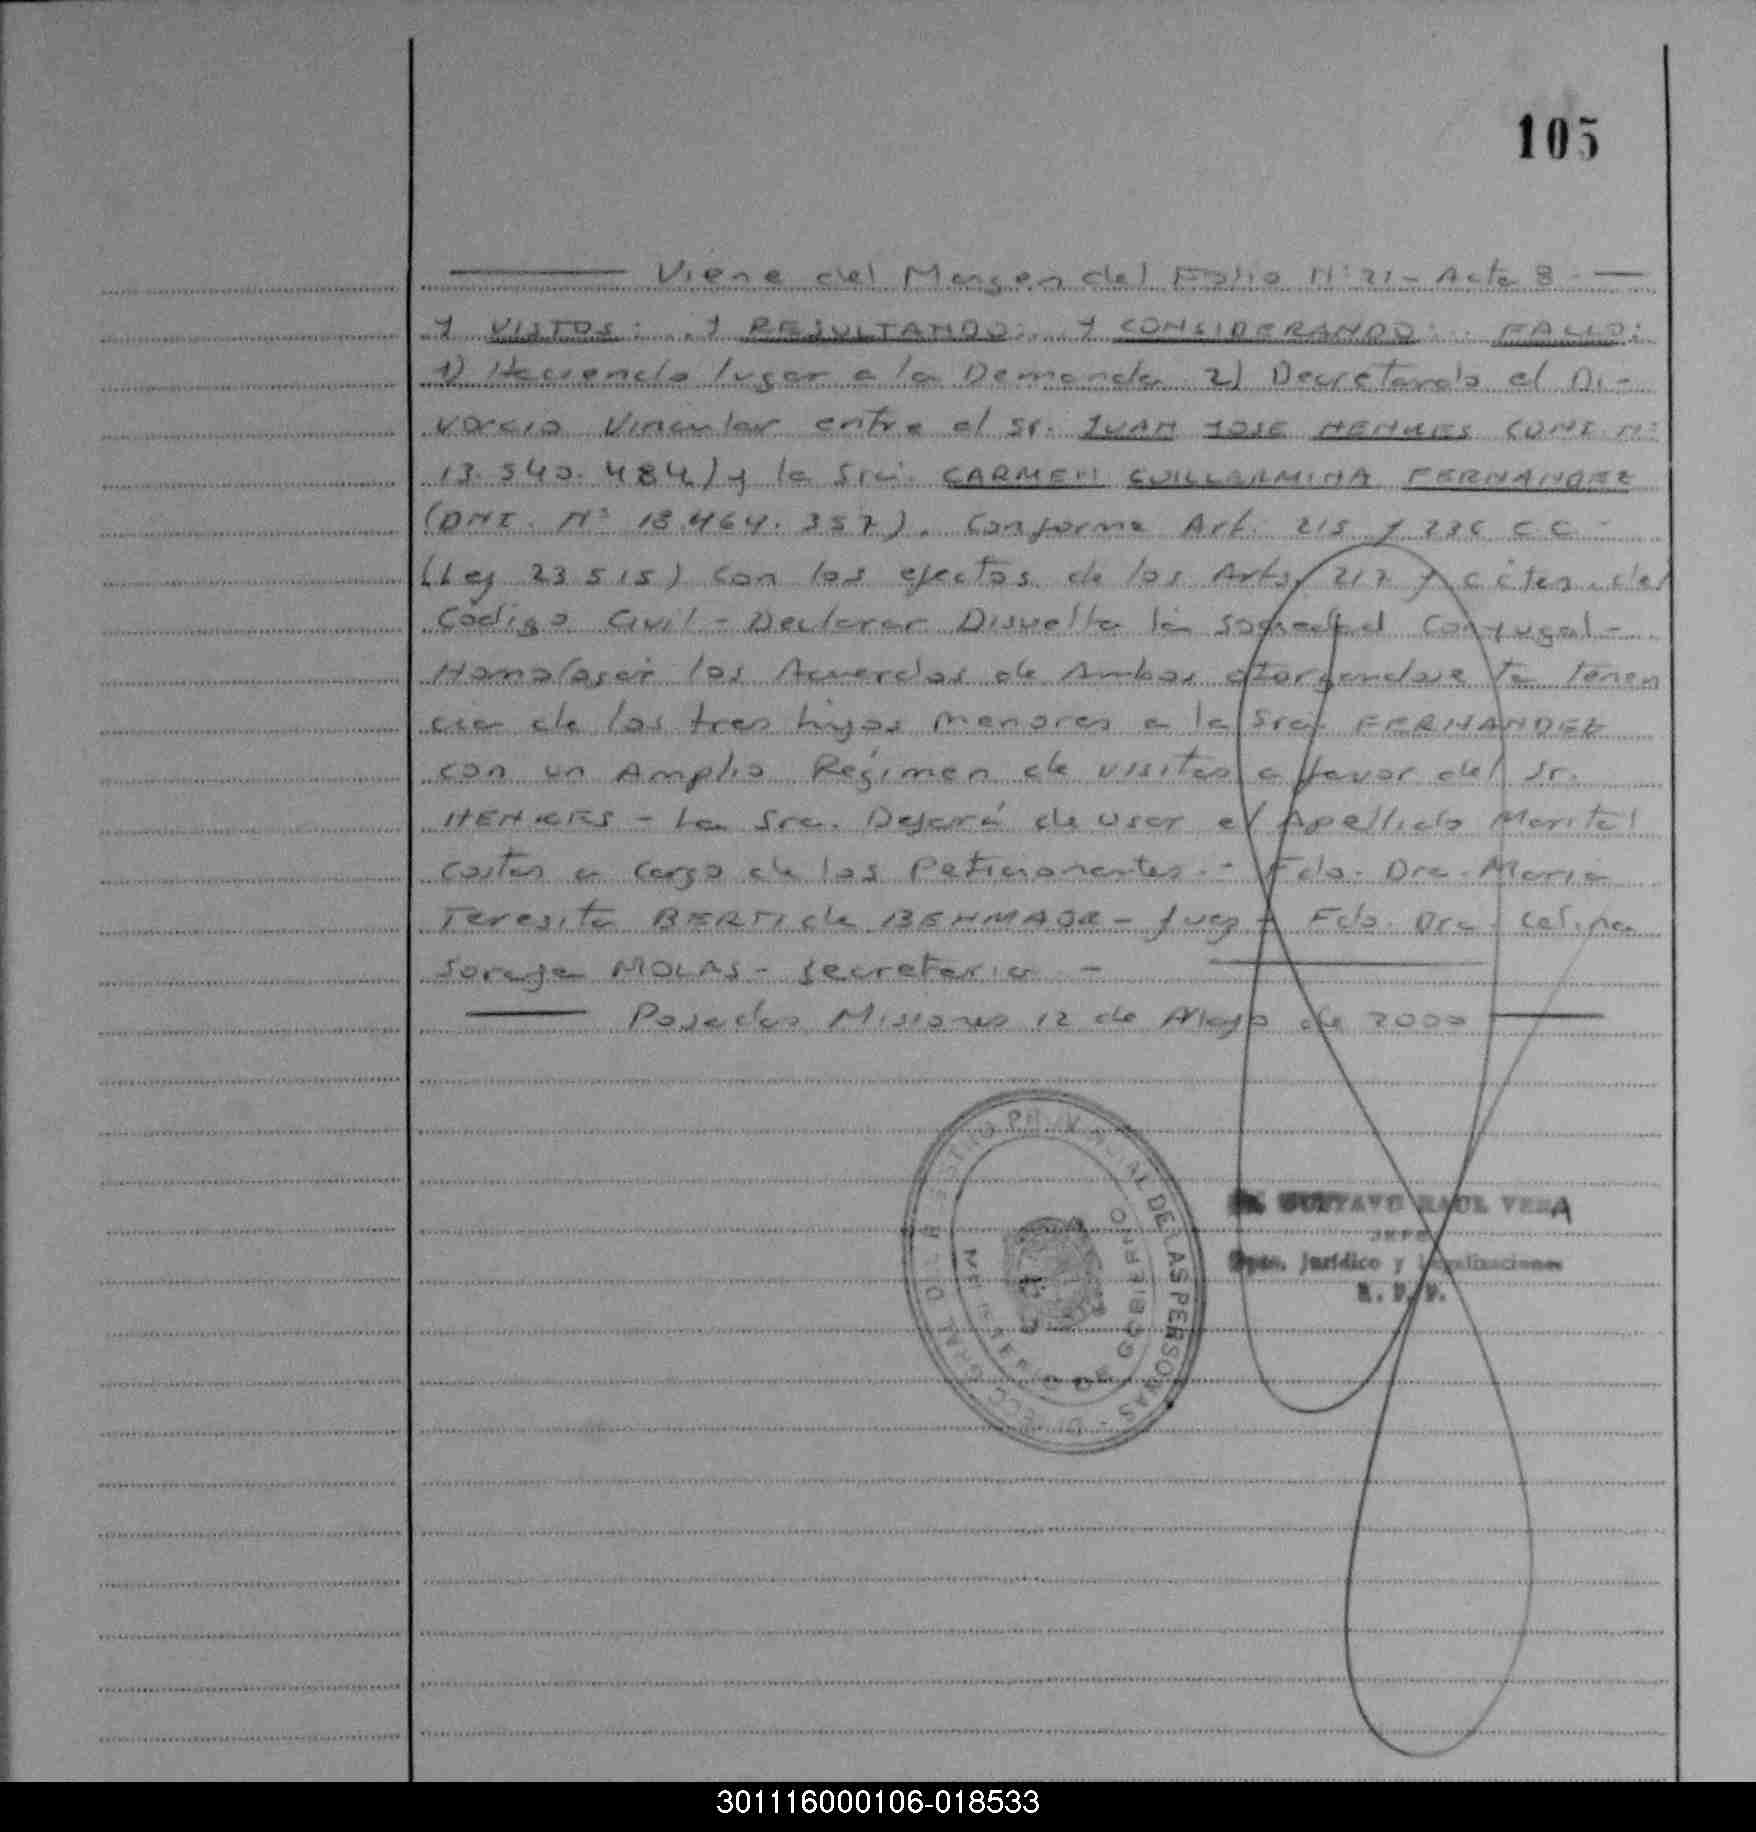 105
Viene del Margen del Folio N° 21 - Acta 8 -
Y VISTOS: .. Y RESULTANDO: .. Y CONSIDERANDO: .. FALLO:
1) Haciendo lugar a la Demanda 2) Decretando el Di-
vorcio Vincular entre el Sr. JUAN JOSE HENKES (DNI. N°
13.540.484) y la Sra. CARMEN GUILLERMINA FERNANDEZ
(DNI. N° 18.464.357). Conforme Art. 215 y 236 C C -
(Ley 23515) con los efectos de los Arts. 217 y cctes. del
Código Civil - Declarar Disuelta la sociedad Conyugal -
Homologar los Acuerdos de Ambos otorgandose la tenen
cia de los tres hijos menores a la Sra. FERNANDEZ
con un Amplio Régimen de visitas a favor del Sr.
HENKES - La Sra. Dejará de usar el Apellido Marital
Costas a cargo de los Peticionantes. - Fdo. Dra. Maria
Teresita BERTI de BEHMAOR - Juez - Fdo. Dra. Celina
Soraya MOLAS - Secretaria -
Posadas Misiones 12 de Mayo de 2000
REGISTRO PROVINCIAL DE LAS PERSONAS - DIRECC. GRAL.
MINISTERIO DE GOBIERNO
GUSTAVO RAUL VERA
JEFE
Dpto. Jurídico y Legalizaciones
R. P. P.
301116000106-018533